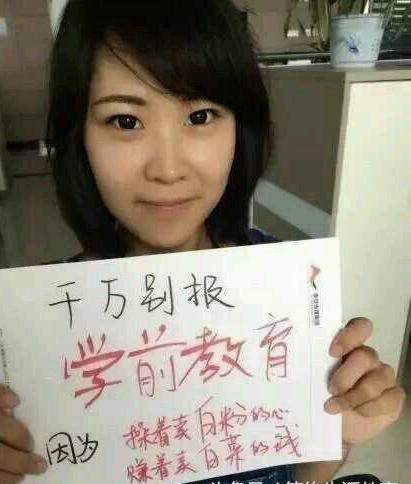 千万别报
学前教育
因为
操着卖白粉的心
赚着卖白菜的钱